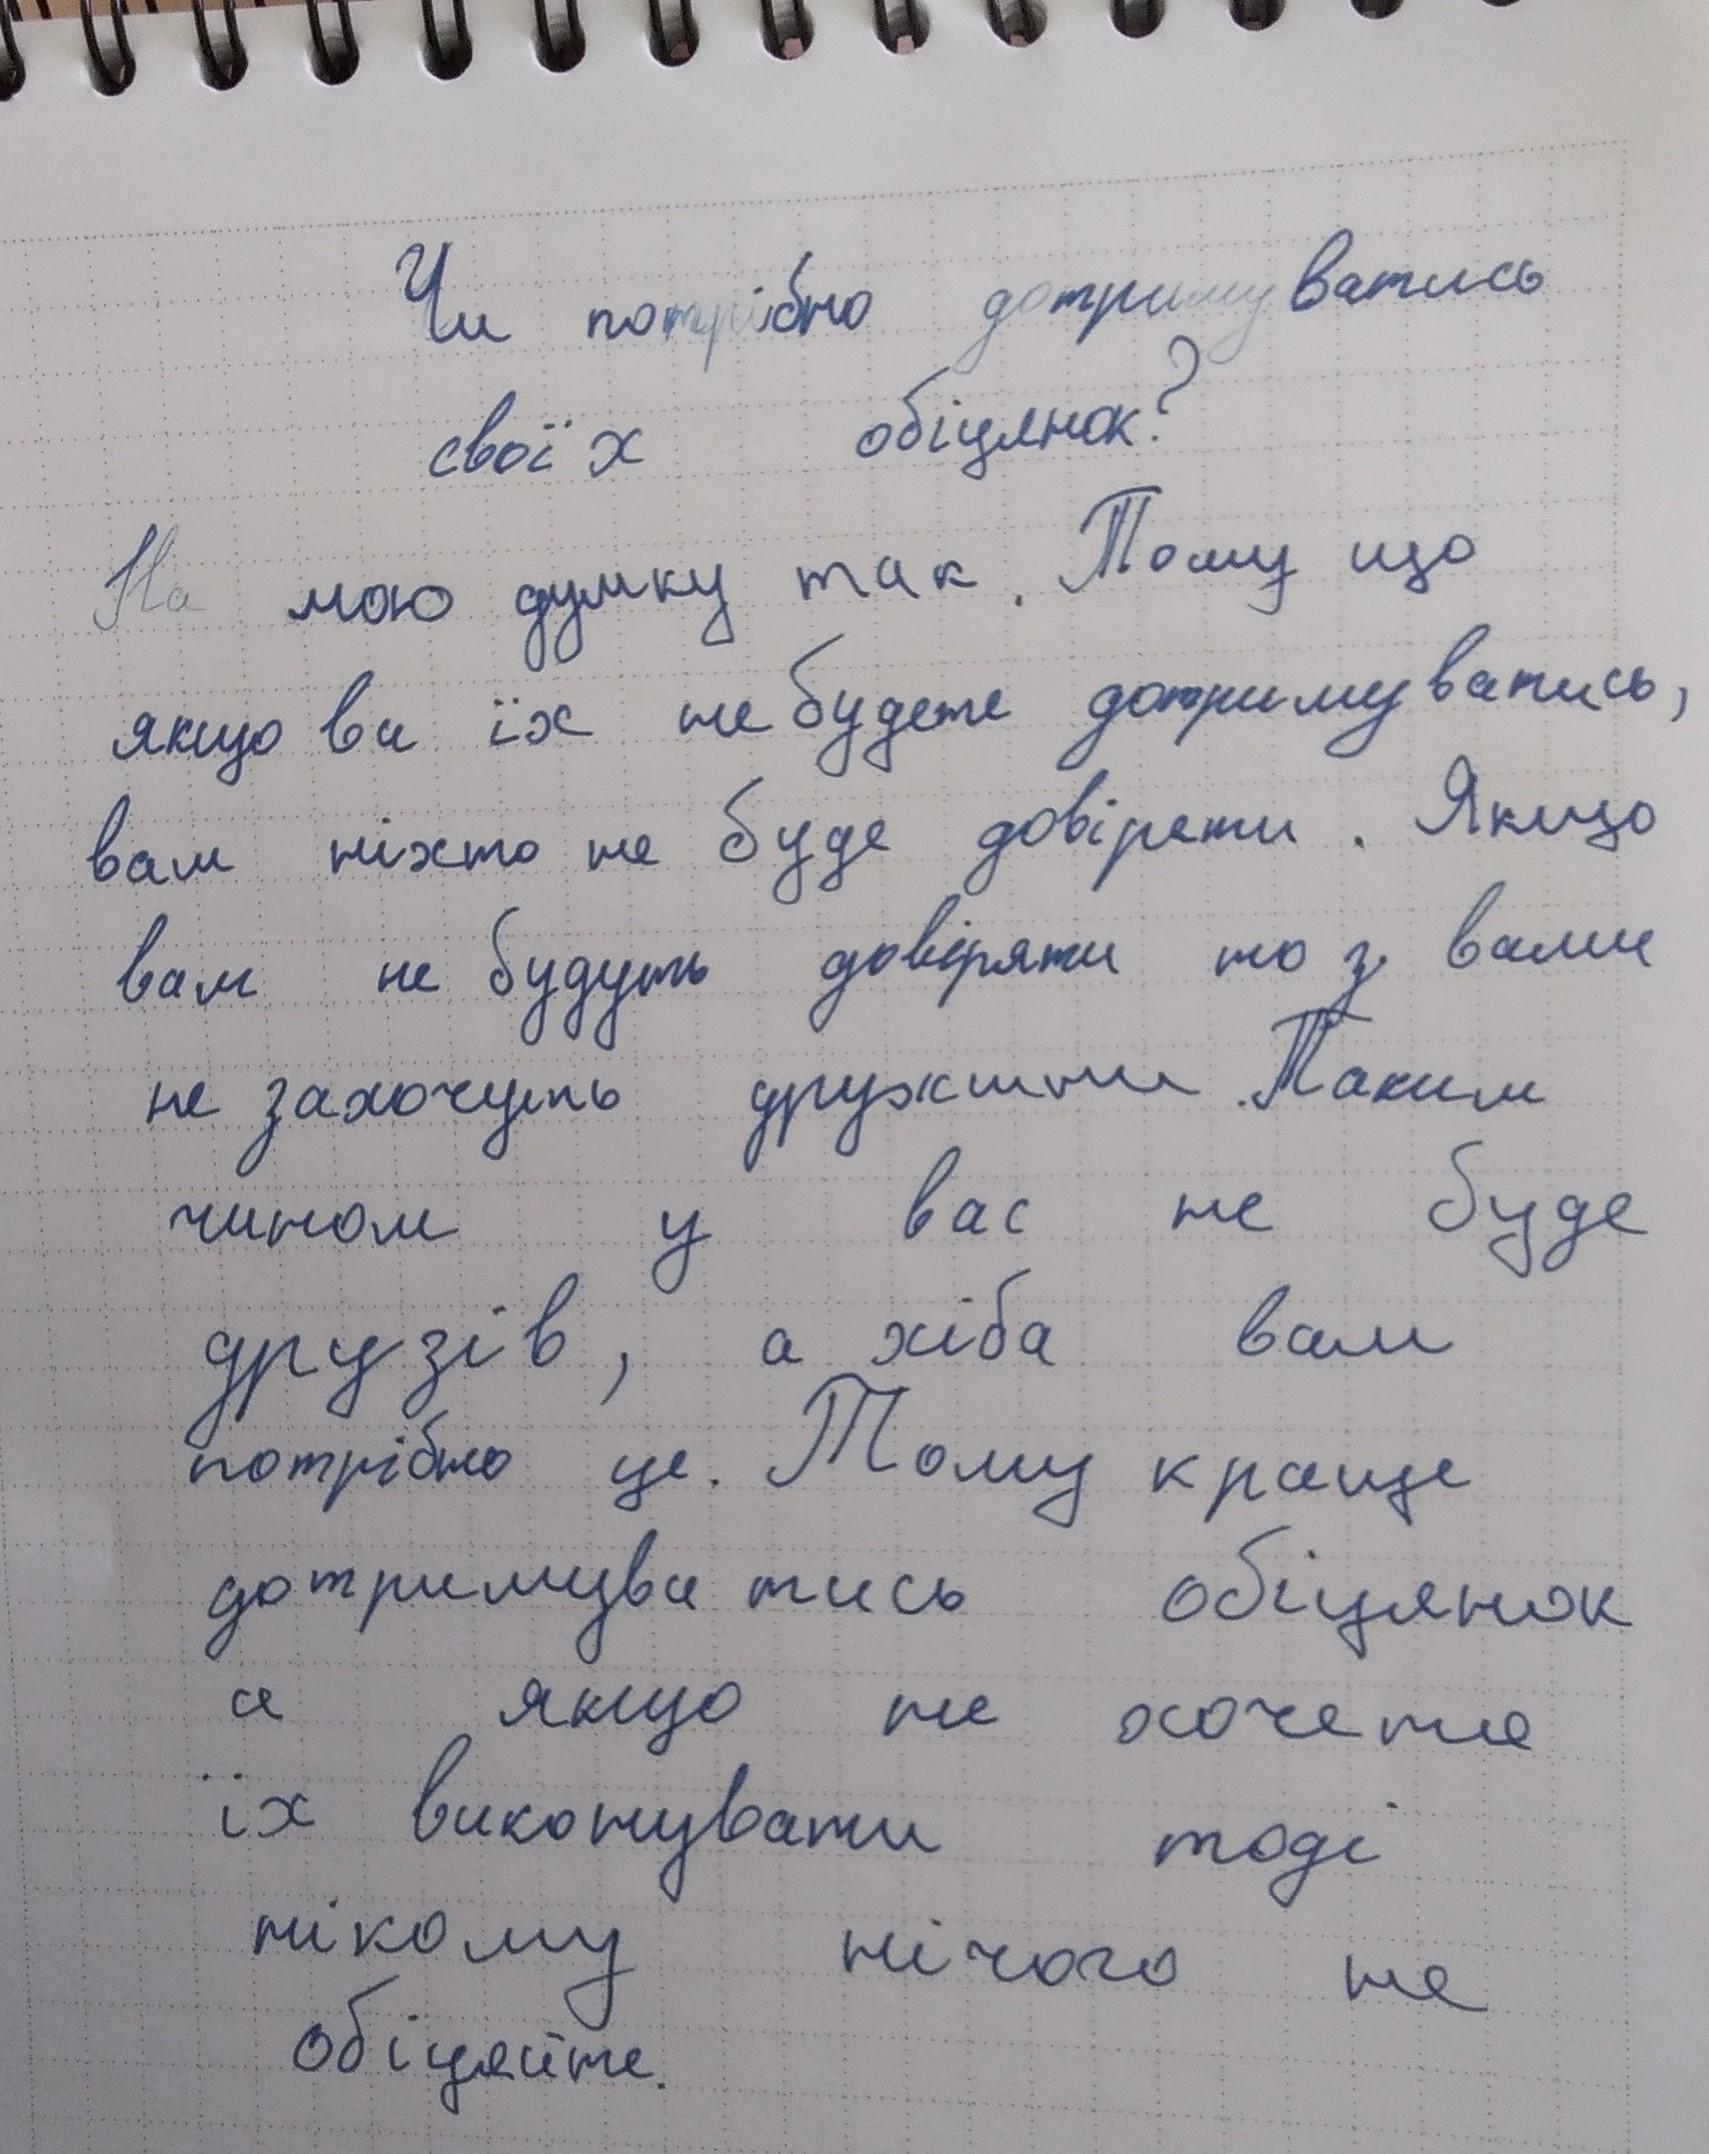 Чи потрібно дотримуватись
своїх обіцянок?
На мою думку так. Тому що
якщо ви їх не будете дотримуватись,
вам ніхто не буде довіряти. Якщо
вам не будуть довіряти то з вами
не захочуть дружити. Таким
чином у вас не буде
друзів, а хіба вам
потрібно це. Тому краще
дотримуватись обіцянок
а якщо не хочете
їх виконувати тоді
нікому нічого не
обіцяйте.